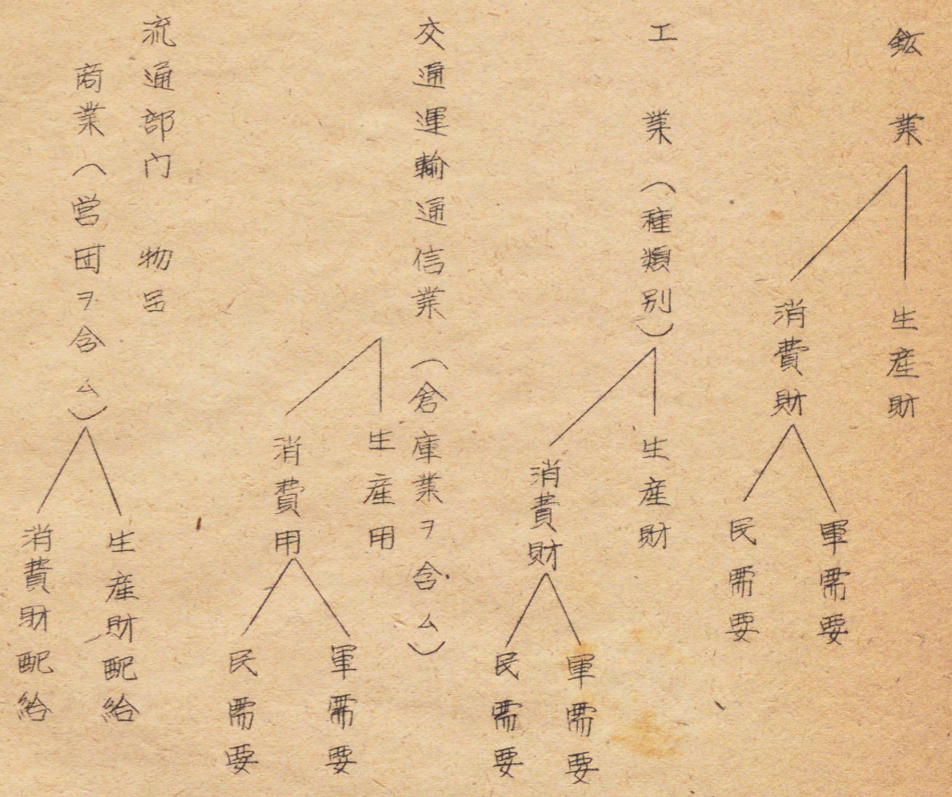 鉱業
生産財
消費財
軍需要
民需要
工業(種類別)
生産財
消費財
軍需要
民需要
交通運輸通信業(倉庫業ヲ含ム)
生産用
消費用
軍需要
民需要
流通部門 物呂
商業(営団ヲ含ム)
生産財配給
消費財配給